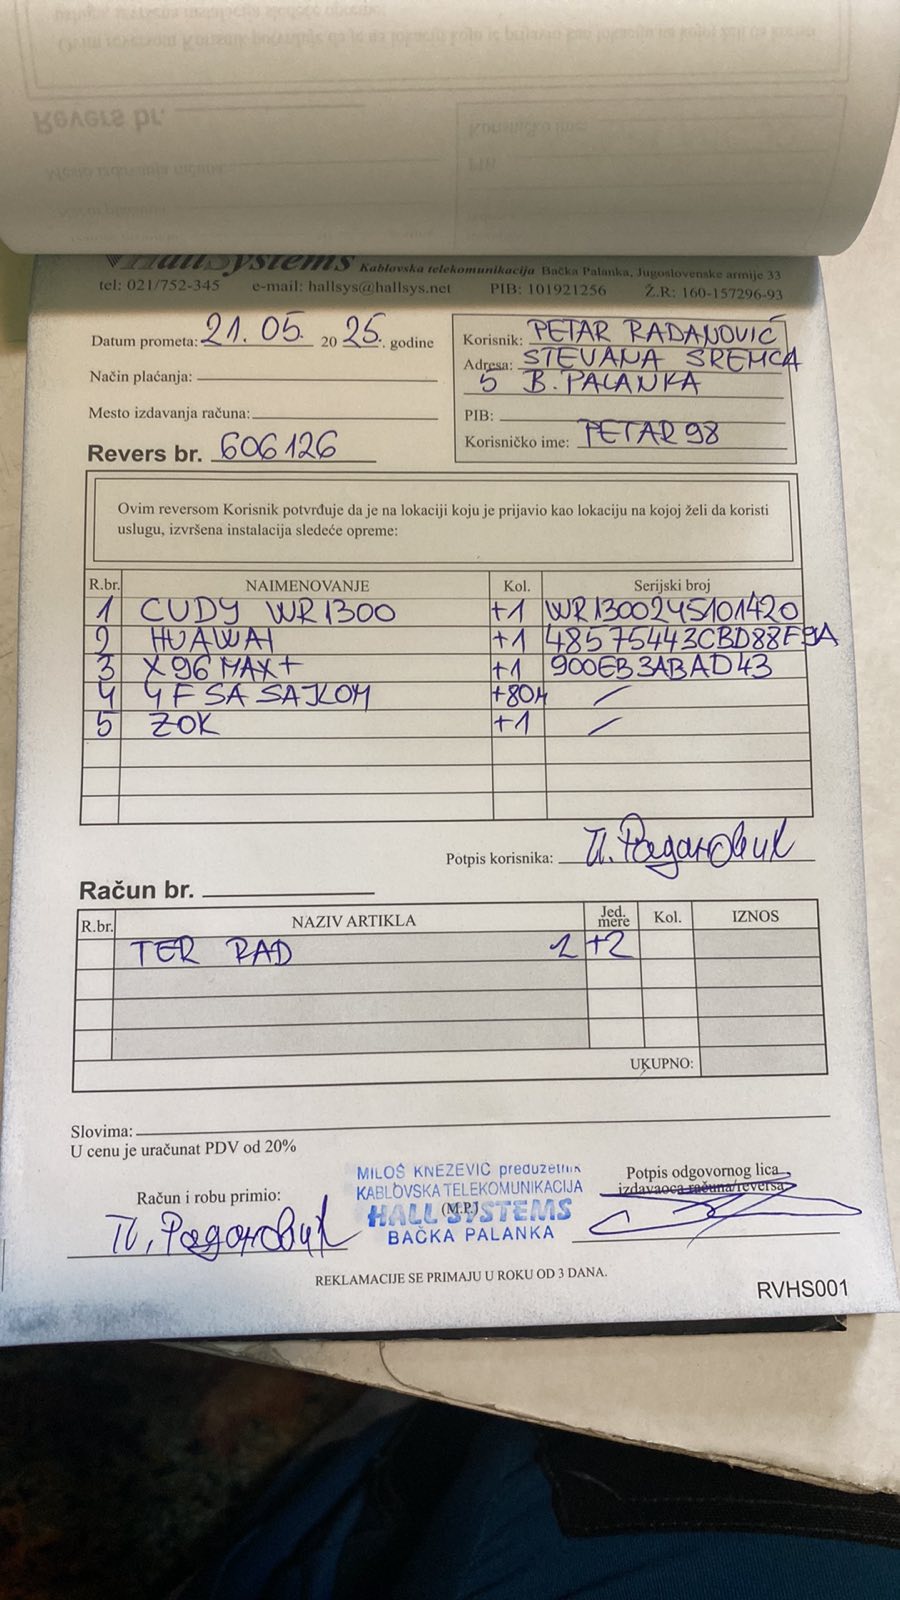 HallSystems Kablovska telekomunikacija Bačka Palanka, Jugoslovenske armije 33
tel: 021/752-345 e-mail: hallsys@hallsys.net PIB: 101921256 Ž.R: 160-157296-93
Datum prometa: 21.05. 2025. godine
Način plaćanja:
Mesto izdavanja računa:
Revers br. 606126
Korisnik: PETAR RADANOVIĆ
Adresa: STEVANA SREMCA
5 B. PALANKA
PIB:
Korisničko ime: PETAR98
Ovim reversom Korisnik potvrđuje da je na lokaciji koju je prijavio kao lokaciju na kojoj želi da koristi
uslugu, izvršena instalacija sledeće opreme:
R.br. NAIMENOVANJE Kol. Serijski broj
1 CUDY WR1300 +1 WR1300245101420
2 HUAWAI +1 48575443CBD88F9A
3 X96 MAX+ +1 900EB3ABAD43
4 4F SA SAJLOM +80M /
5 ZOK +1 /
Potpis korisnika: П. Радановић
Račun br.
R.br. NAZIV ARTIKLA Jed. mere Kol. IZNOS
TER RAD 1 +2
UKUPNO:
Slovima:
U cenu je uračunat PDV od 20%
Račun i robu primio:
П. Радановић
MILOŠ KNEŽEVIĆ preduzetnik
KABLOVSKA TELEKOMUNIKACIJA
(M.P.)
HALL SYSTEMS
BAČKA PALANKA
Potpis odgovornog lica
izdavaoca računa/reversa
REKLAMACIJE SE PRIMAJU U ROKU OD 3 DANA.
RVHS001